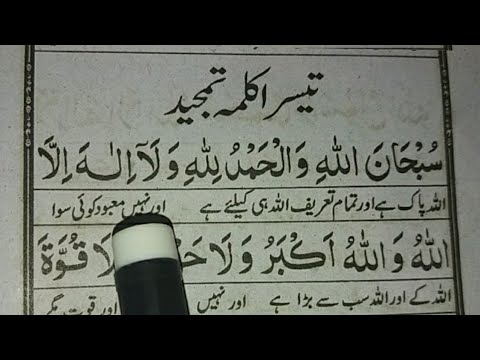 تیسرا کلمہ تمجید
سُبْحَانَ اللهِ وَالْحَمْدُ لِلّٰهِ وَلَآ اِلٰهَ اِلَّا
اللہ پاک ہے اور تمام تعریف اللہ ہی کیلئے ہے اور نہیں معبود کوئی سوا
اللهُ وَاللهُ اَكْبَرُ وَلَا قُوَّةَ
اللہ کے اور اللہ سب سے بڑا ہے اور نہیں اور قوت مگر